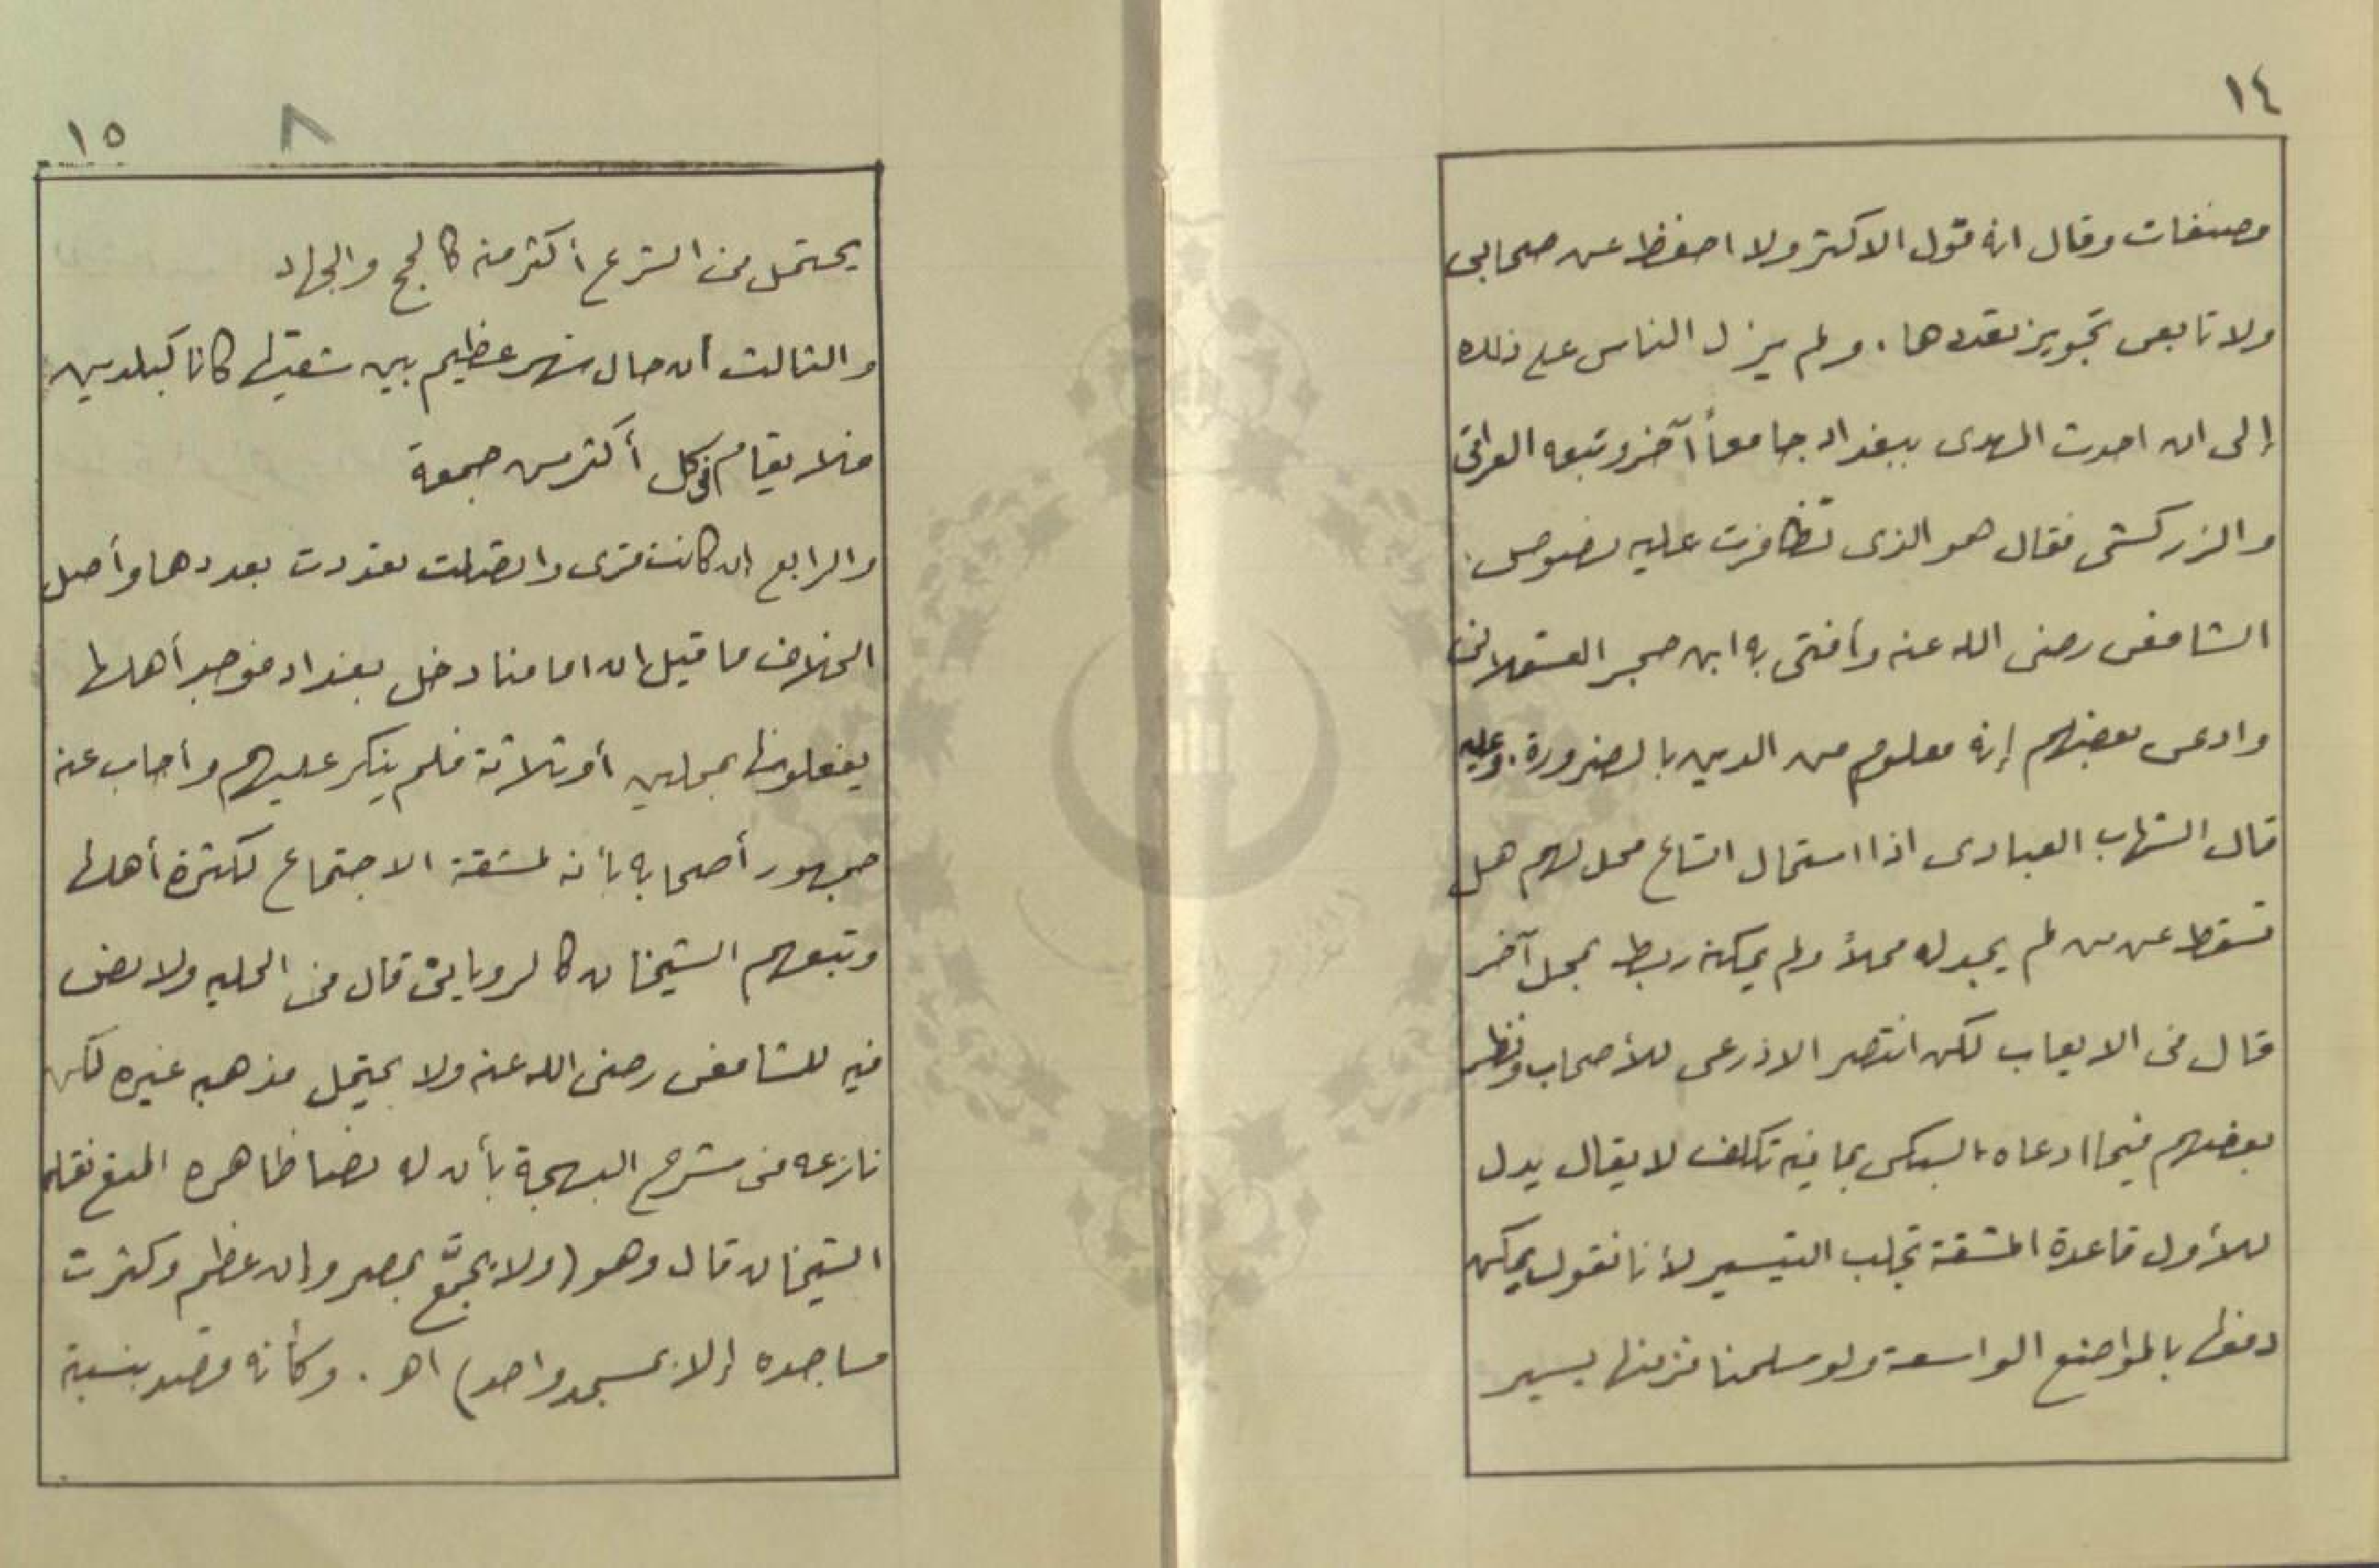 ١٤
مصنفات وقال انه قول الاكثر ولا احفظ عن صحابى
ولا تابعى تجويز تعددها. ولم يزل الناس على ذلك
إلى ان احدث المهدى ببغداد جامعاً آخر وتبعه العراقى
والزركشى فقال هو الذى تظافرت عليه نصوص
الشافعى رضى الله عنه وأفتى به ابن حجر العسقلانى
وادعى بعضهم إنه معلوم من الدين بالضرورة. وعليه
قال الشهاب العبادى اذا استحال اتساع محل لهم هل
تسقط عن من لم يجد له محلاً ولم يمكنه ربط بمحل آخر
قال فى الايعاب لكن انتصر الاذرعى للأصحاب ونظر
بعضهم فيما ادعاه السبكى بما فيه تكلف لا يقال يدل
للأول قاعدة المشقة تجلب التيسير لأنا نقول يمكن
دفعها بالمواضع الواسعة ولو سلمنا فزمنها يسير
١٥
٨
يحتمل من الشرع أكثر منه كالحج والجهاد
والثالث ان حال نهر عظيم بين شقيها كانا كبلدين
فلا يقام فى كل أكثر من جمعة
والرابع إن كانت قرى واتصلت تعددت بعددها وأصل
الخلاف ما قيل ان امامنا دخل بغداد فوجد أهلها
يفعلونها بمحلين أو ثلاثة فلم ينكر عليهم وأجاب عنه
جمهور أصحابه بأنه لمشقة الاجتماع لكثرة أهلها
وتبعهم الشيخان كالرويانى قال فى الحليه ولا نص
فيه للشافعى رضى الله عنه ولا يحتمل مذهبه غيره لكن
نازعه فى شرح البهجة بأن له نصا ظاهره المنع نقله
الشيخان قال وهو (ولا يجمَّع بمصر وإن عظم وكثرت
مساجده إلا بمسجد واحد) اهـ. وكأنه قصد بنسبة